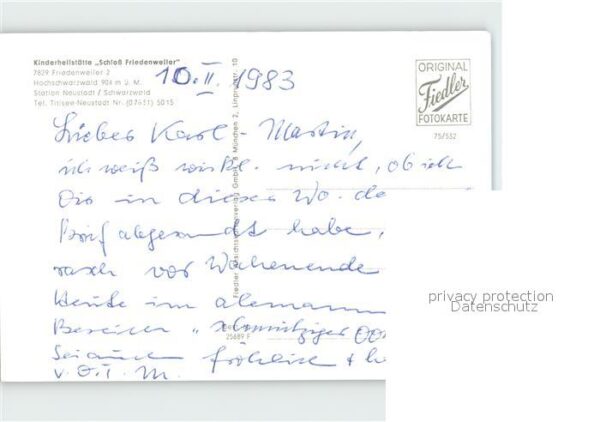 Kinderheilstätte „Schloß Friedenweiler"
7829 Friedenweiler 2
Hochschwarzwald 904 m ü. M.
Station Neustadt / Schwarzwald
Tel. Titisee-Neustadt Nr. (07651) 5015
10.II.1983
ORIGINAL
Fiedler
FOTOKARTE
75/532
Lieber Karl-Martin,
ich weiß wirkl. nicht, ob ich
Dir in dieser Wo. de
Brief abgesandt habe,
rasch vor Wochenende
Heute im alemann
Bereich „schmutziger Do
Sei auch fröhlich +
v. D. T. M.
25689 F
privacy protection
Datenschutz